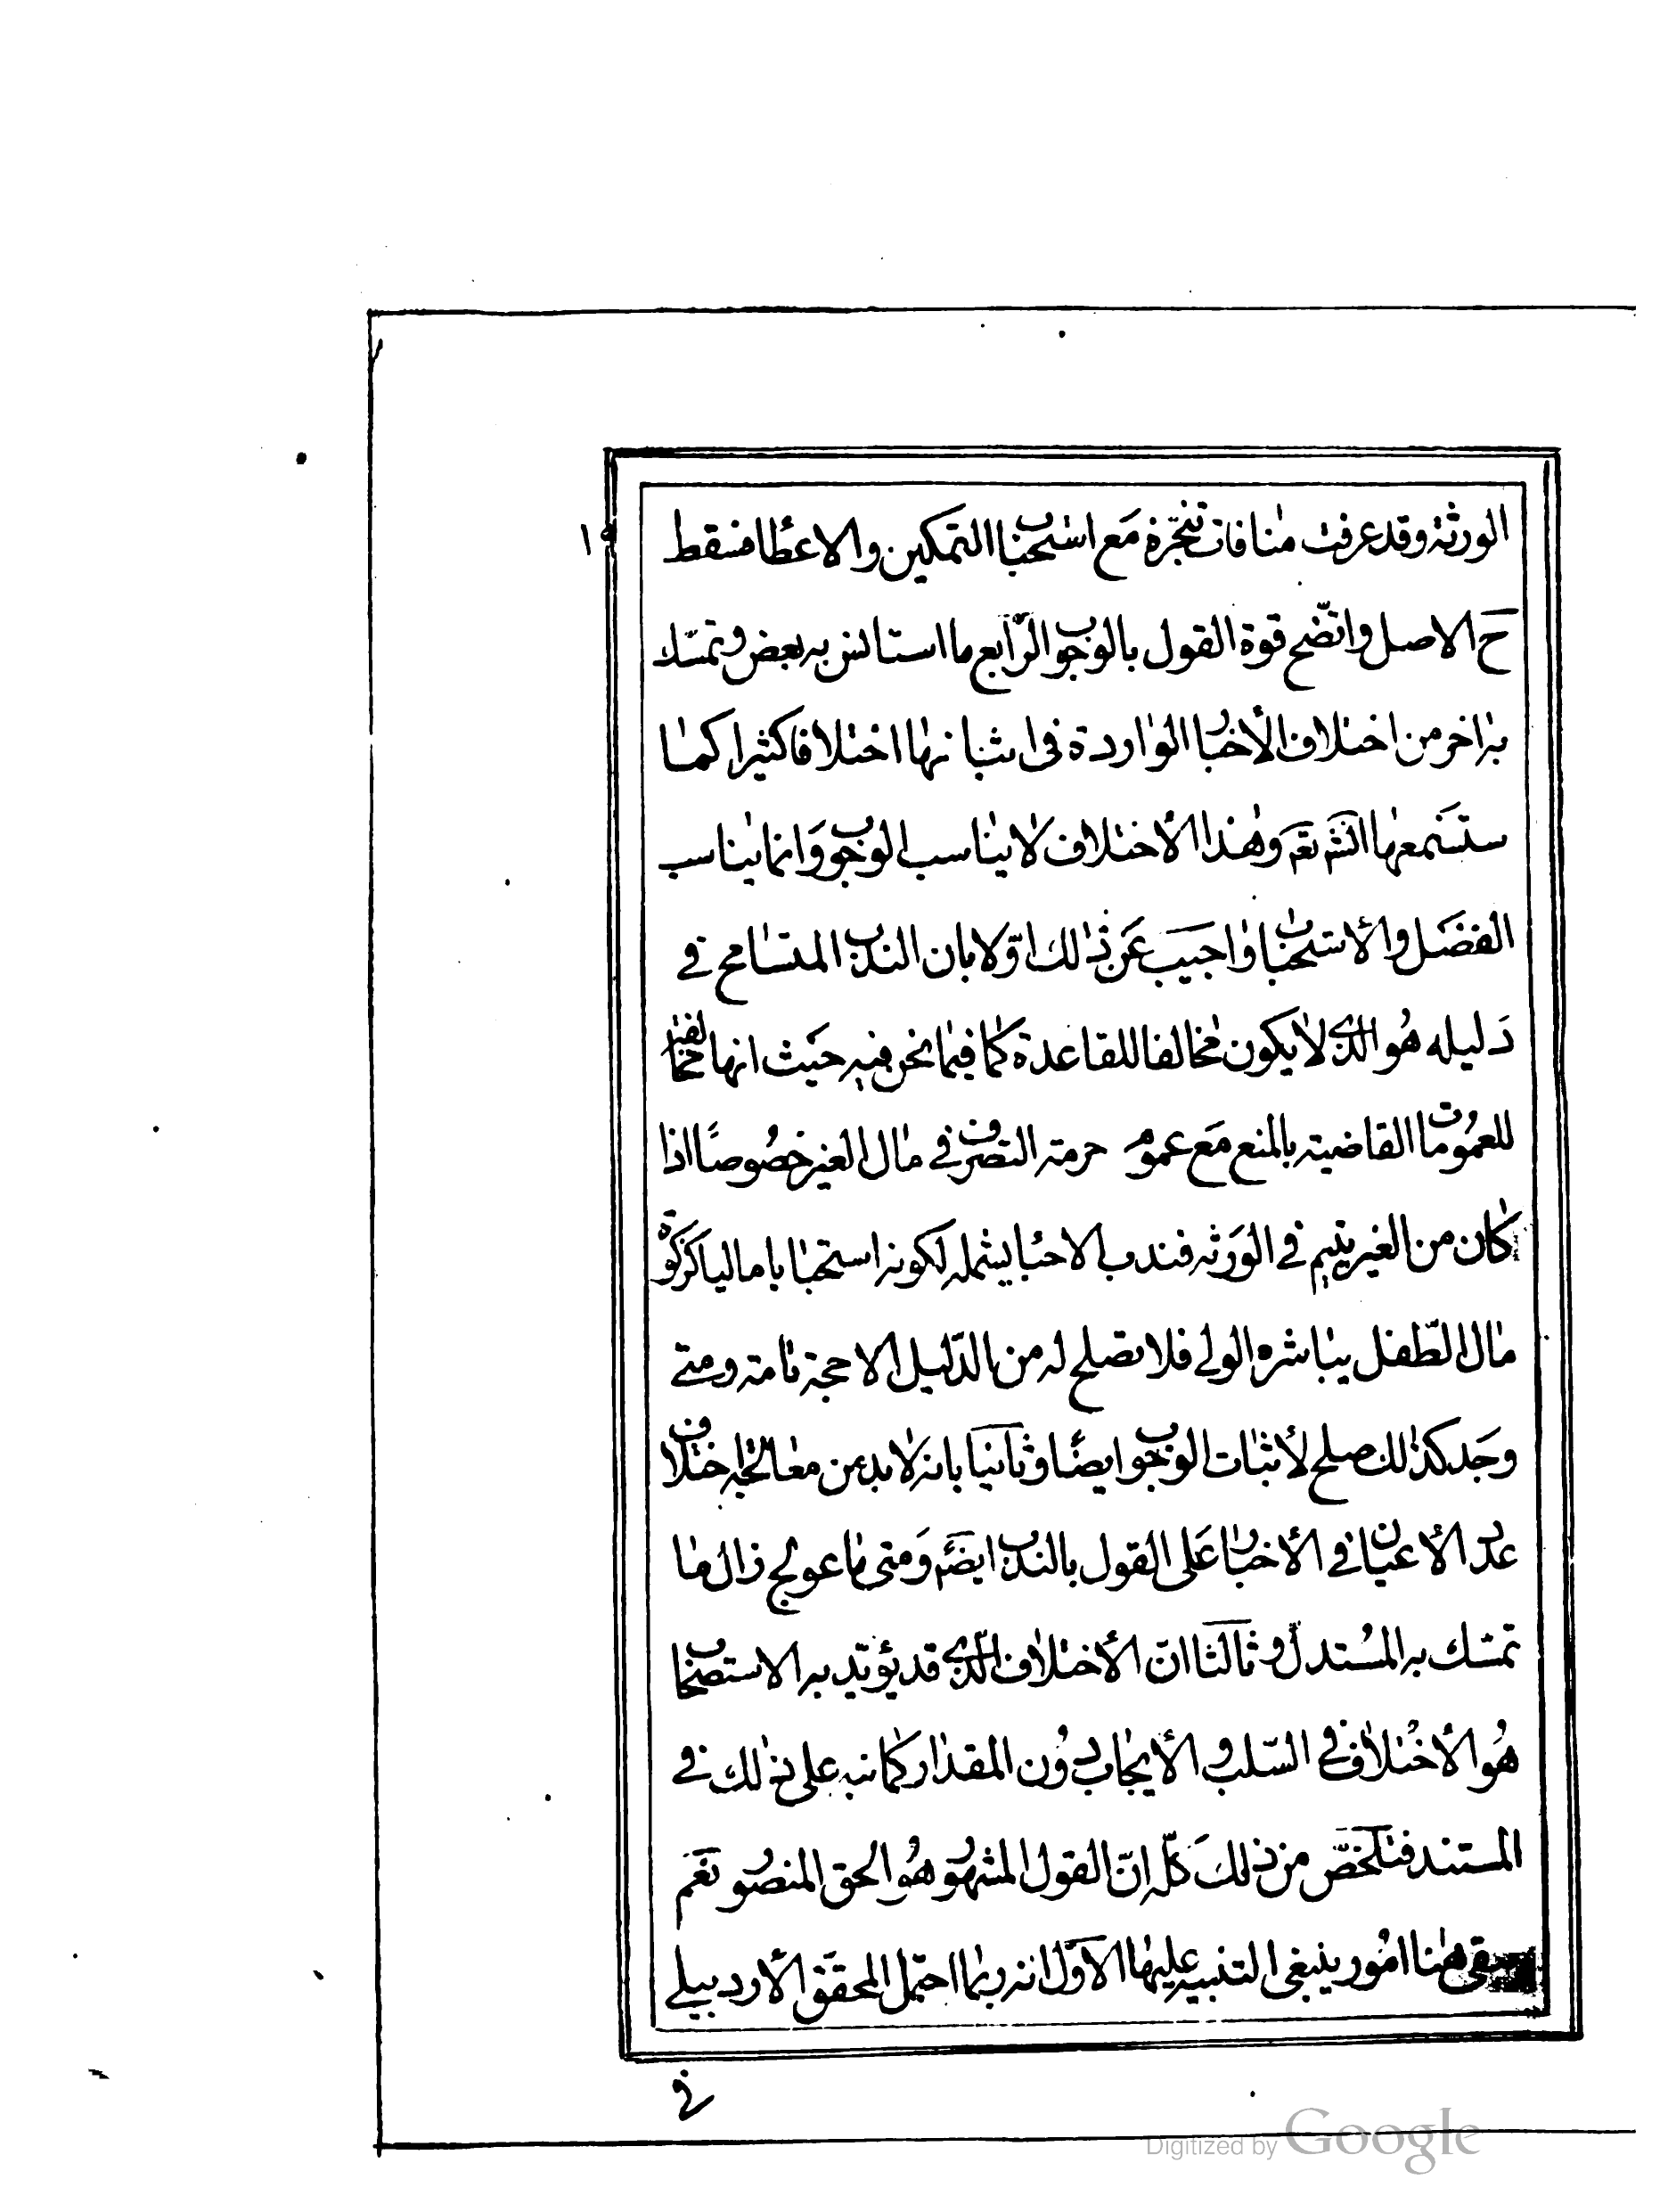 الورثة وقد عرفت منافات تنجّزه مَع استحباب التمكين والاعطا فسقط
١٩
حَ الاصل واتضّح قوة القول بالوجوب الرّابع ما استانس به بعض وتمسّك
به اخر من اختلاف الأخبار الواردة فى اثباتها اختلافا كثيرا كما
ستسمعها انشَ تعَم وهٰذا الأختلاف لا يناسب الوجوب وَانما يناسب
الفضَل والأستحباب واجيَب عَن ذٰلك اوّلا بان الندب المتسامح فى
دَليله هُو الذى لا يكون مخالفا للقاعدة كما فيما نحن فيه حيَث انها مخالفة
للعمُومات القاضية بالمنع مَع عموم حرمة التصرف فى مال الغير خصُوصًا اذا
كان من الغير يتيم فى الوَرثه فندب الاحبا يشمله لكونه استحبابا ماليا كزكوة
مال الطّفل يباشره الولى فلا تصلح له من الدّليل الا حجة تامة ومتى
وجَد كذلك صلح لأثبات الوجوب ايضًا وثانيَا بانه لا بد من معالجة اختلاف
عدد الأعيان فى الأخبار عَلى القول بالندب ايضَم وَمتى ما عولج زال ما
تمسّك به المُستدلّ وثالثا انّ الأختلاف الّذى قد يؤيّد به الاستصحاب
هُو الأختلاف فى السّلب والأيجاب دُون المقدار كما نبه على ذٰلك فى
المستند فتلَخصّ من ذلكَ كلّه انّ القول المشهُور هُو الحق المنصُور نعَم
بقى هنا امُور ينبغى التنبيه عليها الأوّل انه ربما احتمل المحقق الأردبيلى
فى
Digitized by Google